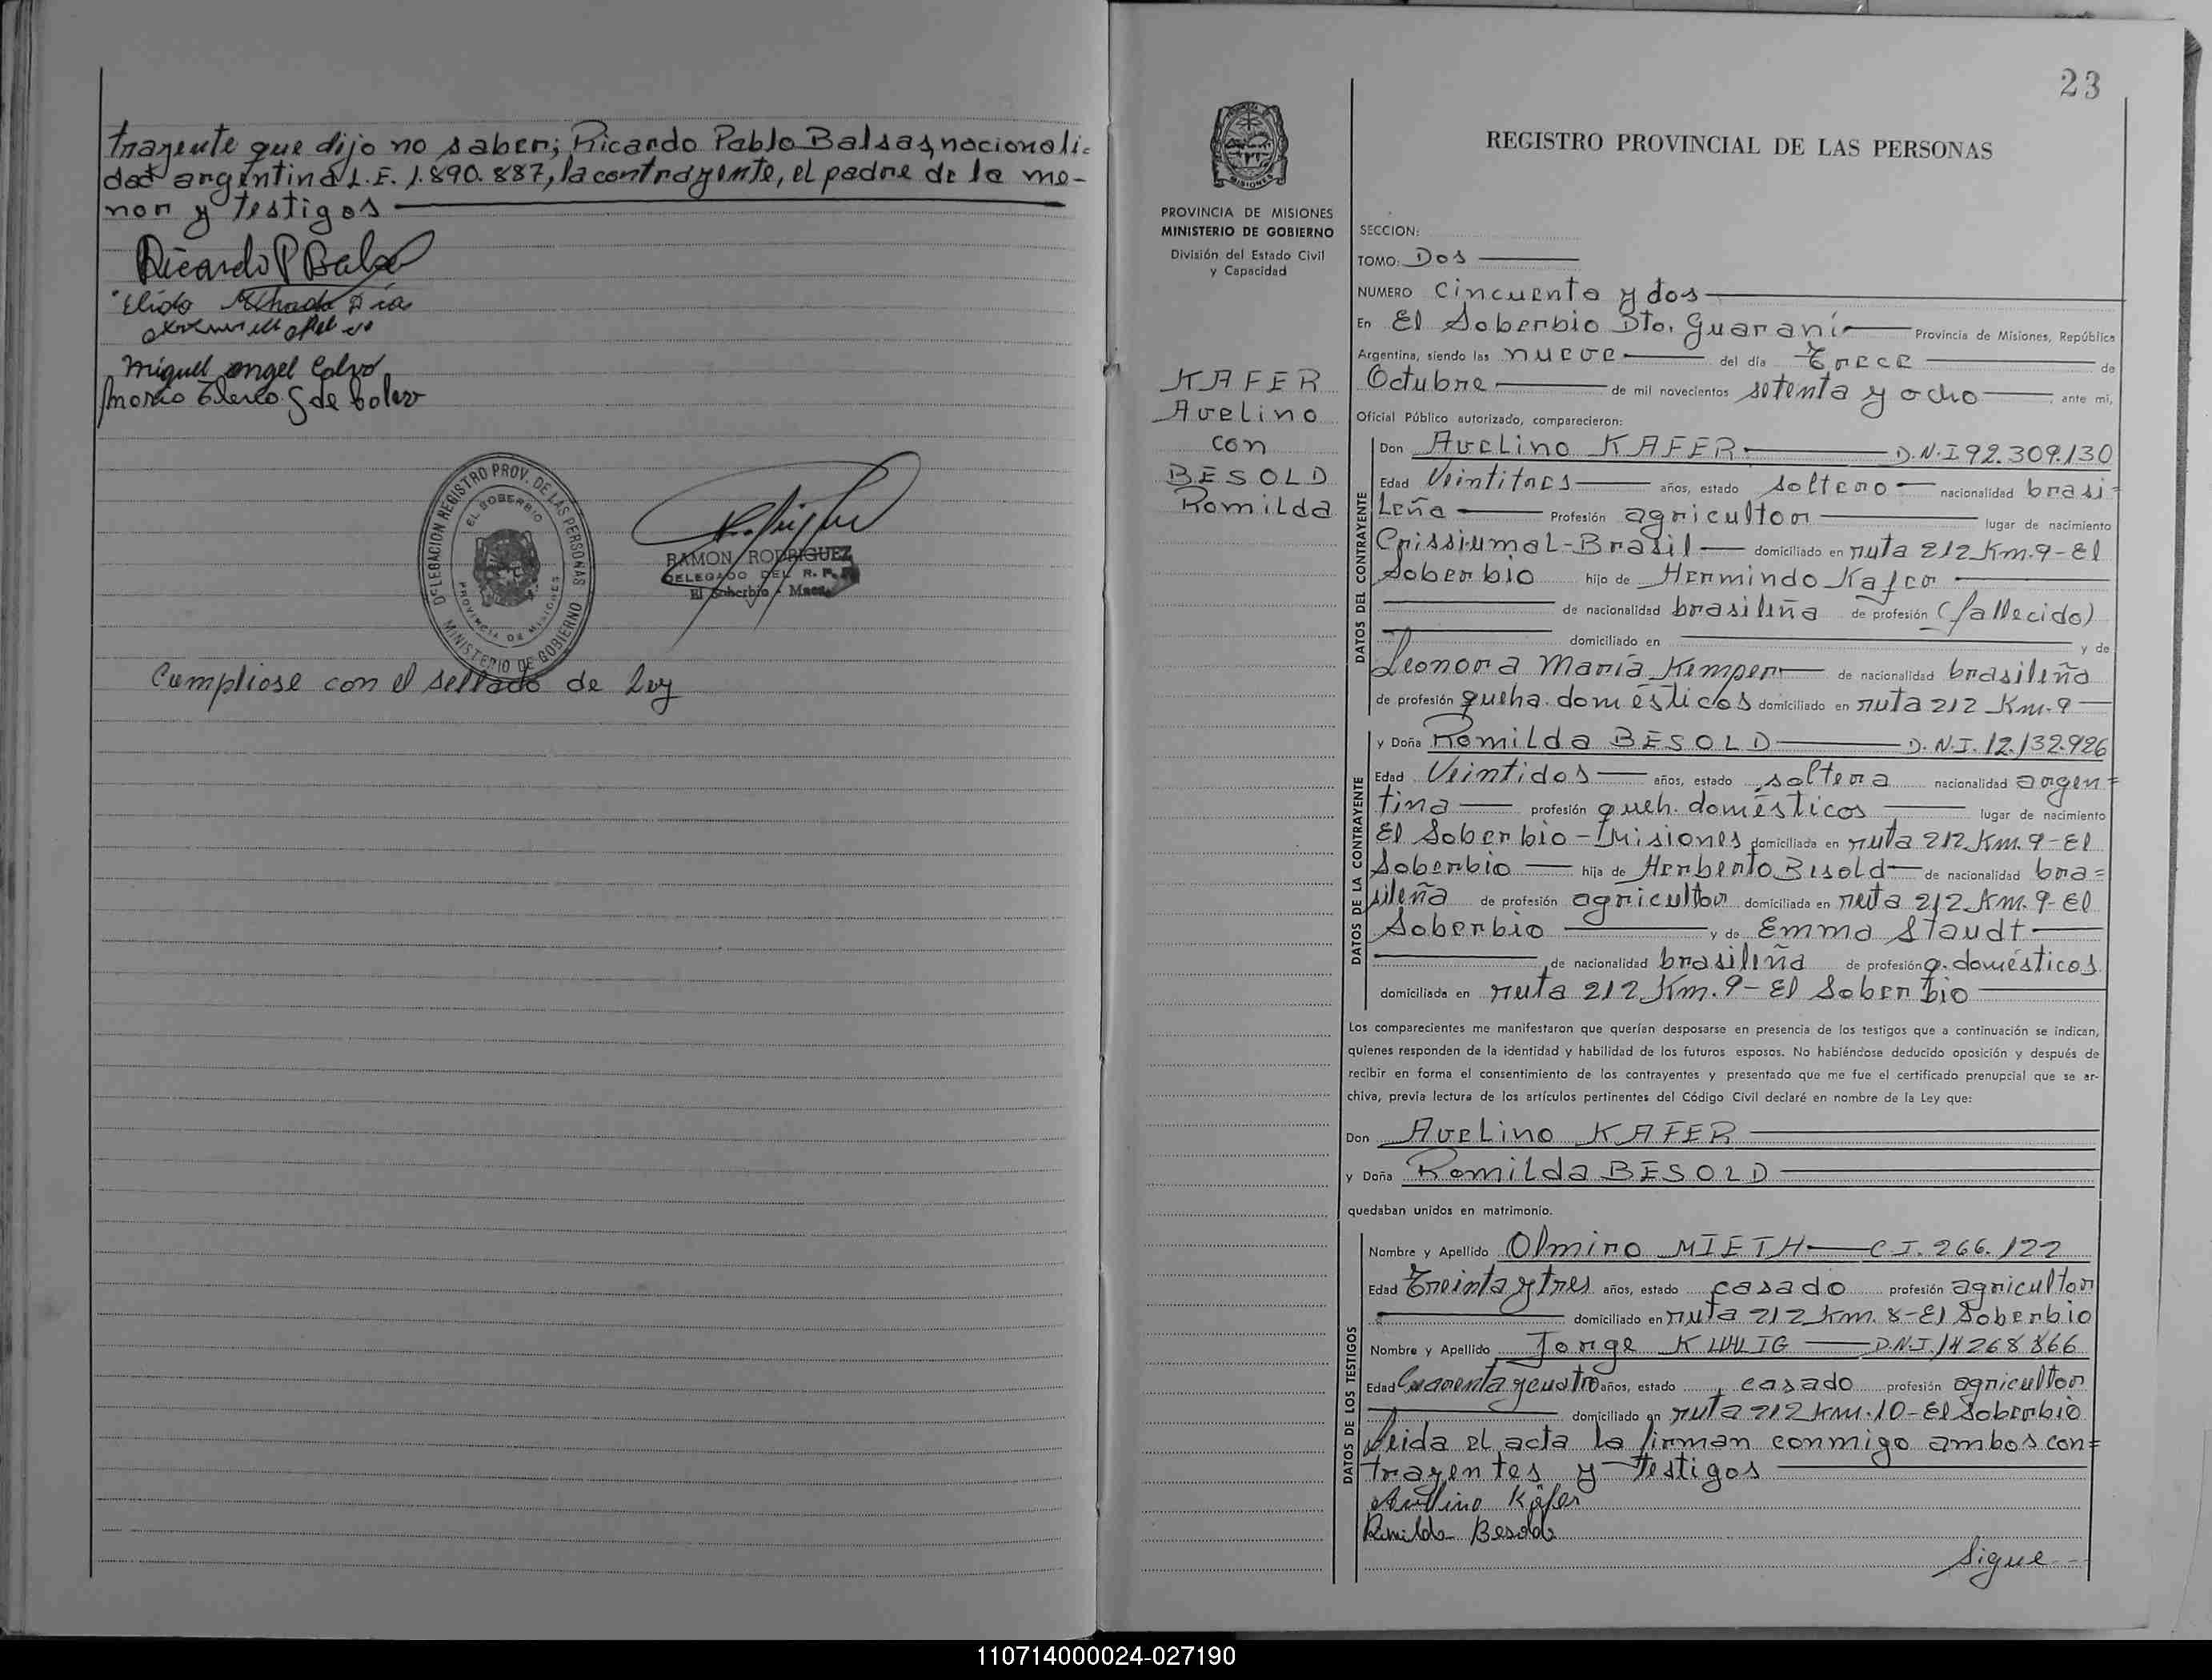 trayente que dijo no saber; Ricardo Pablo Balsas, nacionali-
dad argentina L.E. 1.890.887, la contrayente, el padre de la me-
nor y testigos
Ricardo P Balsa
Elido
Miguel angel Calvo
de Calvo
DELEGACION REGISTRO PROV. DE LAS PERSONAS
EL SOBERBIO
PROVINCIA DE MISIONES
MINISTERIO DE GOBIERNO
RAMON RODRIGUEZ
DELEGADO DEL R. P.
El Soberbio - Mnes.
Cumpliose con el sellado de Ley
23
REGISTRO PROVINCIAL DE LAS PERSONAS
MISIONES
PROVINCIA DE MISIONES
MINISTERIO DE GOBIERNO
División del Estado Civil
y Capacidad
KAFER
Avelino
con
BESOLD
Romilda
SECCION:
TOMO: Dos
NUMERO Cincuenta y dos
En El Soberbio Dto. Guaraní Provincia de Misiones, República
Argentina, siendo las nueve del día Trece de
Octubre de mil novecientos setenta y ocho, ante mi,
Oficial Público autorizado, comparecieron:
DATOS DEL CONTRAYENTE
Don Avelino KAFER D.N.I 92.309.130
Edad Veintitres años, estado soltero nacionalidad brasi=
Leña Profesión agricultor lugar de nacimiento
Crissiumal-Brasil domiciliado en ruta 212 Km.9-El
Soberbio hijo de Hermindo Kafer
de nacionalidad brasileña de profesión (fallecido)
domiciliado en y de
Leonora María Kemper de nacionalidad brasileña
de profesión queha. domésticos domiciliado en ruta 212 Km.9
DATOS DE LA CONTRAYENTE
y Doña Romilda BESOLD D.N.I. 12.132.926
Edad Veintidos años, estado soltera nacionalidad argen=
tina profesión queh. domésticos lugar de nacimiento
El Soberbio-Misiones domiciliada en ruta 212 Km. 9-El
Soberbio hija de Herberto Besold de nacionalidad bra=
sileña de profesión agricultor domiciliada en ruta 212 Km. 9-El
Soberbio y de Emma Staudt
de nacionalidad brasileña de profesión q. domésticos
domiciliada en ruta 212 Km. 9-El Soberbio
Los comparecientes me manifestaron que querían desposarse en presencia de los testigos que a continuación se indican,
quienes responden de la identidad y habilidad de los futuros esposos. No habiéndose deducido oposición y después de
recibir en forma el consentimiento de los contrayentes y presentado que me fue el certificado prenupcial que se ar-
chiva, previa lectura de los artículos pertinentes del Código Civil declaré en nombre de la Ley que:
Don Avelino KAFER
y Doña Romilda BESOLD
quedaban unidos en matrimonio.
DATOS DE LOS TESTIGOS
Nombre y Apellido Olmiro MIETH C.I. 266.122
Edad Treinta y tres años, estado casado profesión agricultor
domiciliado en ruta 212 Km. 8-El Soberbio
Nombre y Apellido Jorge KUHLIG D.N.I. 14268866
Edad Cuarenta y cuatro años, estado casado profesión agricultor
domiciliado en ruta 212 Km.10-El Soberbio
Leida el acta la firman conmigo ambos con=
trayentes y testigos
Avelino Käfer
Romilda Besold
Sigue--
110714000024-027190